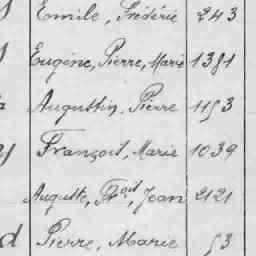 Emile, Frédéric 243
Eugène, Pierre, Marie 1381
Augustin, Pierre 1153
François, Marie 1039
Auguste, Fr^ois, Jean 2121
d Pierre, Marie 53